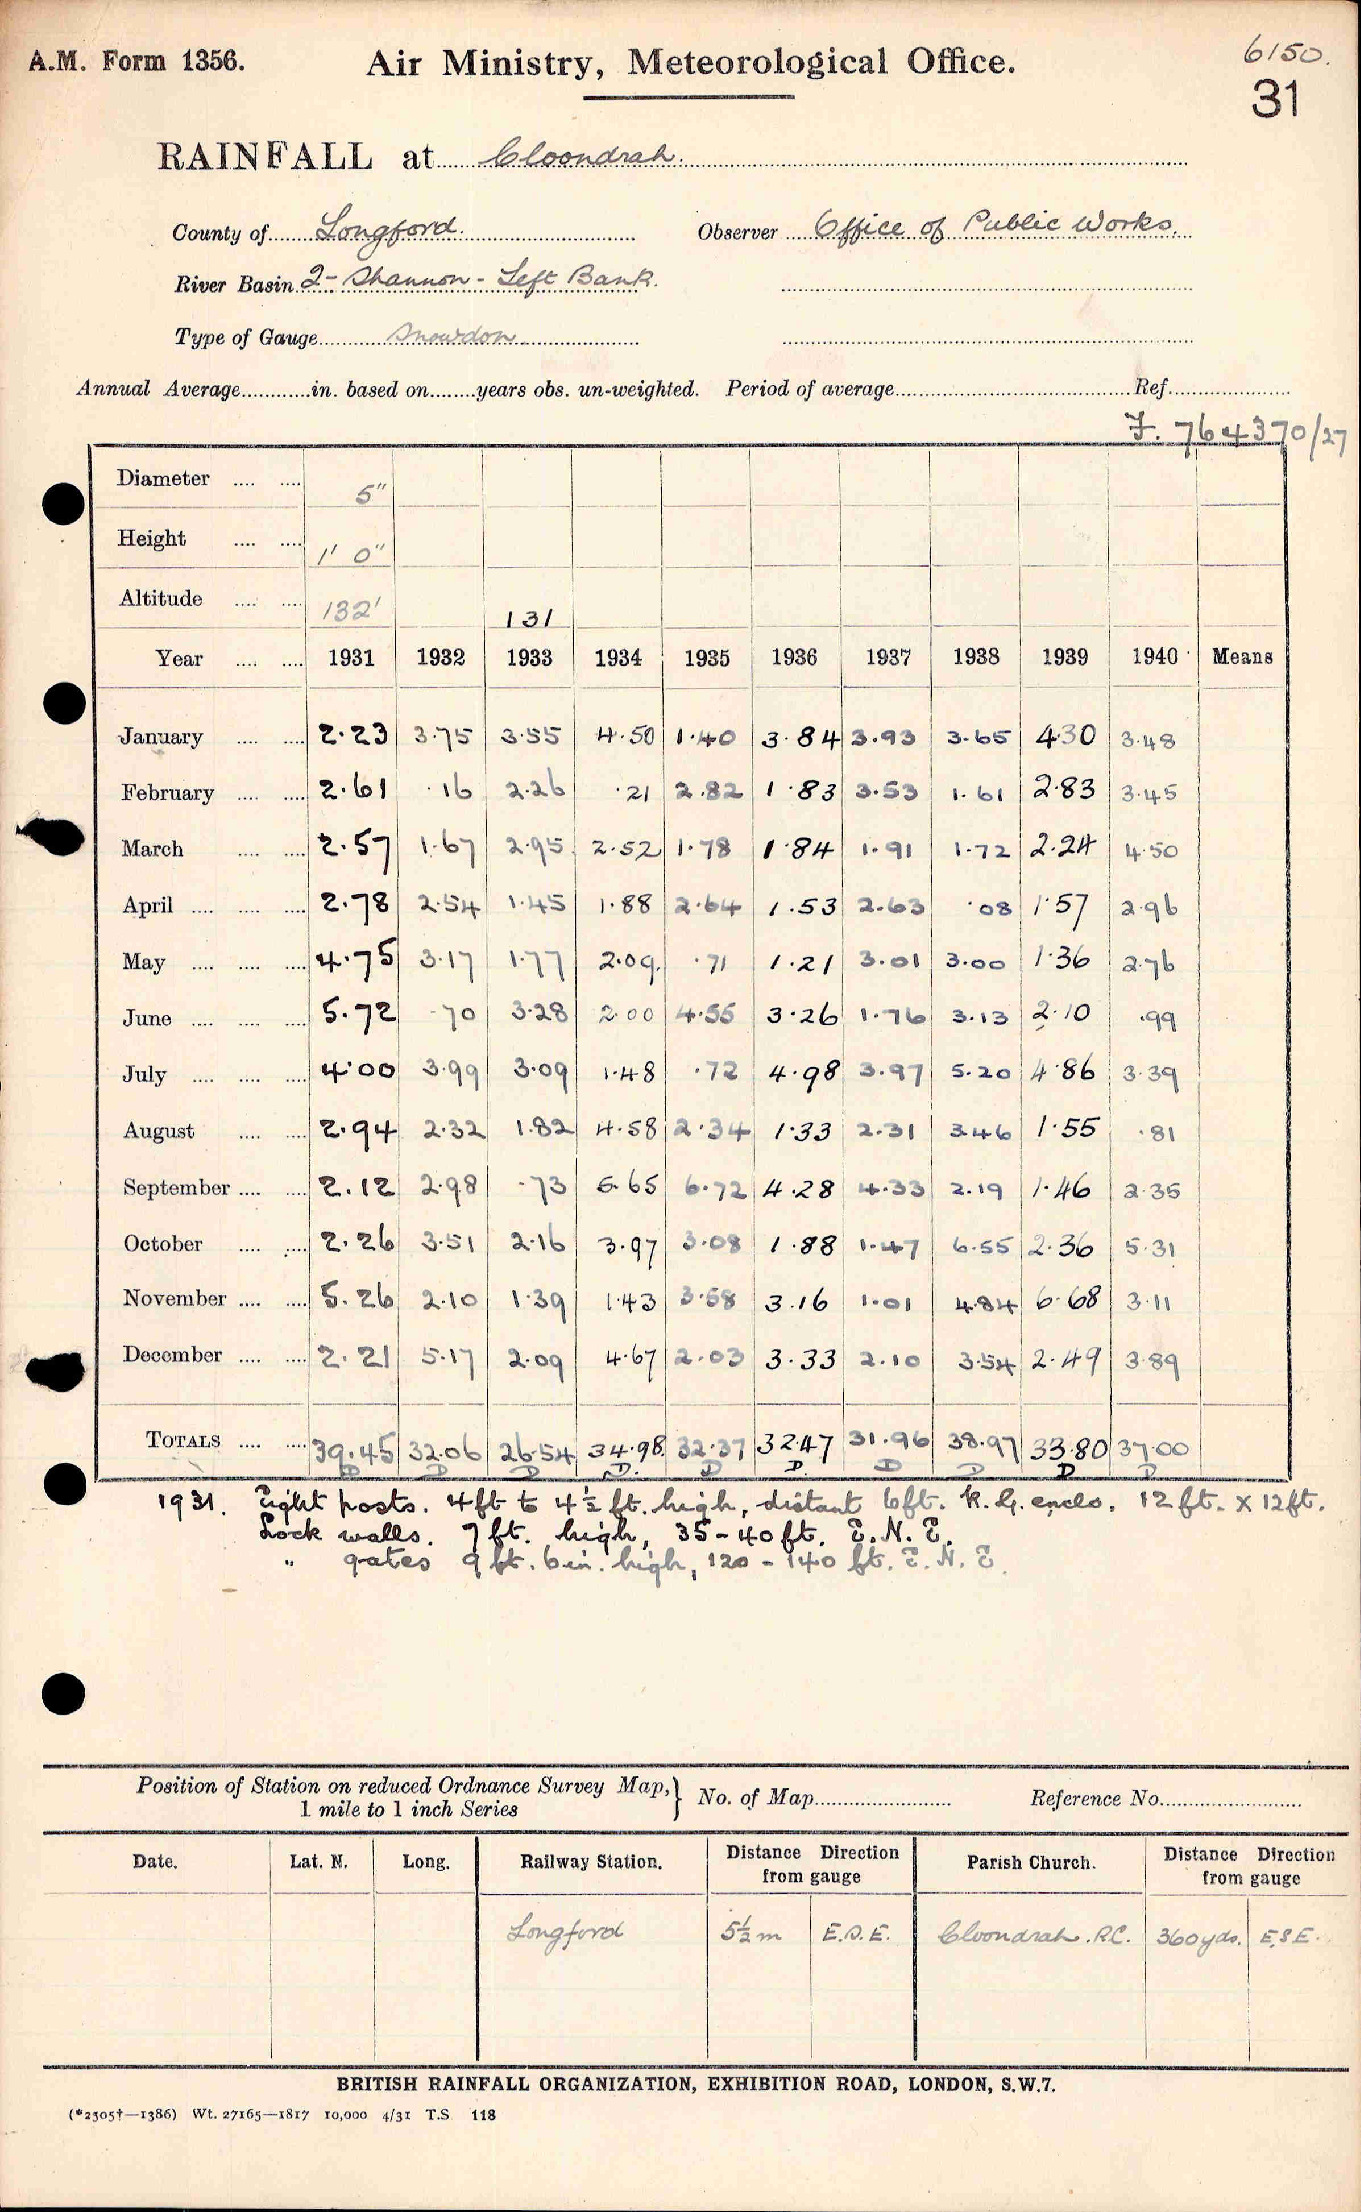 A.M. Form 1356. Air Ministry, Meteorological Office. 6150.
31
RAINFALL at Cloondrah.
County of Longford. Observer Office of Public Works.
River Basin 2 - Shannon - Left Bank.
Type of Gauge Snowdon
Annual Average............in. based on........years obs. un-weighted. Period of average........................................Ref.....................
F. 764370/27
Diameter .... .... 5"
Height .... .... 1' 0"
Altitude .... .... 132' 131
Year .... .... 1931 1932 1933 1934 1935 1936 1937 1938 1939 1940 Means
January .... .... 2.23 3.75 3.55 4.50 1.40 3.84 3.93 3.65 4.30 3.48
February .... .... 2.61 .16 2.26 .21 2.82 1.83 3.53 1.61 2.83 3.45
March .... .... 2.57 1.67 2.95 2.52 1.78 1.84 1.91 1.72 2.24 4.50
April .... .... .... 2.78 2.54 1.45 1.88 2.64 1.53 2.63 .08 1.57 2.96
May .... .... .... 4.75 3.17 1.77 2.09. .71 1.21 3.01 3.00 1.36 2.76
June .... .... .... 5.72 .70 3.28 2.00 4.55 3.26 1.76 3.13 2.10 .99
July .... .... .... 4.00 3.99 3.09 1.48 .72 4.98 3.97 5.20 4.86 3.39
August .... .... 2.94 2.32 1.82 4.58 2.34 1.33 2.31 3.46 1.55 .81
September .... .... 2.12 2.98 .73 5.65 6.72 4.28 4.33 2.19 1.46 2.35
October .... .... 2.26 3.51 2.16 3.97 3.08 1.88 1.47 6.55 2.36 5.31
November .... .... 5.26 2.10 1.39 1.43 3.58 3.16 1.01 4.84 6.68 3.11
December .... .... 2.21 5.17 2.09 4.67 2.03 3.33 2.10 3.54 2.49 3.89
TOTALS .... .... 39.45 32.06 26.54 34.98. 32.37 32.47 31.96 38.97 33.80 37.00
D D D D. D D. D D D D
1931. Eight posts. 4ft to 4½ ft. high, distant 6ft. R.G. enclo. 12ft. x 12ft.
Lock walls. 7ft. high, 35-40ft. E.N.E.
" gates 9ft. 6in. high, 120 - 140 ft. E.N.E.
Position of Station on reduced Ordnance Survey Map,} No. of Map........................ Reference No.........................
1 mile to 1 inch Series
Date. Lat. N. Long. Railway Station. Distance Direction from gauge Parish Church. Distance Direction from gauge
Longford 5½ m E.S.E. Cloondrah. R.C. 360 yds. E.S.E.
BRITISH RAINFALL ORGANIZATION, EXHIBITION ROAD, LONDON, S.W.7.
(*2505†—1386) Wt. 27165—1817 10,000 4/31 T.S 118